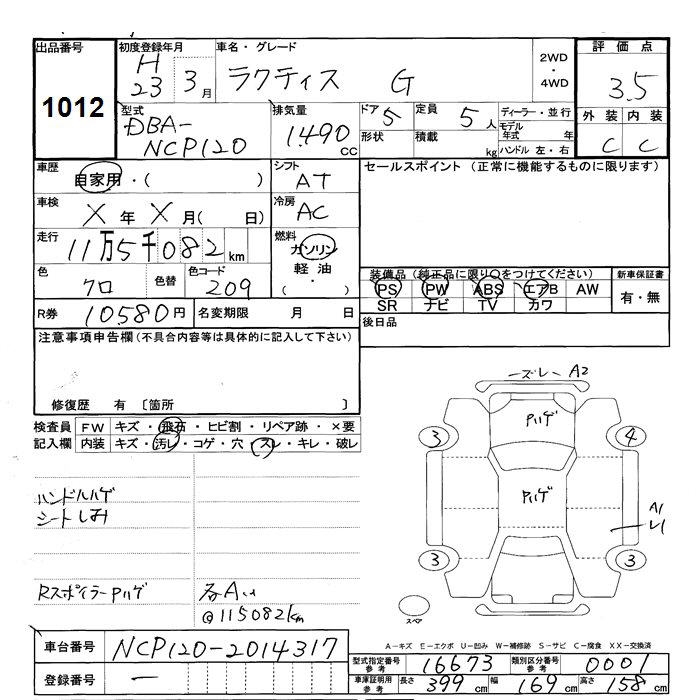 出品番号 初度登録年月 車名・グレード 2WD・4WD 評価点
1012 H23 3月 ラクティス G 3.5
型式 排気量 ドア 5 定員 5人 ディーラー・並行 外装 内装
DBA-NCP120 1490CC 形状 積載 kg モデル年式 年 C C
ハンドル 左・右
車歴 自家用・( ) シフト AT セールスポイント (正常に機能するものに限ります)
車検 X年X月( 日) 冷房 AC
走行 11万5千082km 燃料 ガソリン
色 クロ 色替 色コード 209 軽油・( )
装備品 (純正品に限り○をつけてください) 新車保証書
PS PW ABS エアB AW 有・無
SR ナビ TV カワ
R券 10580円 名変期限 月 日 後日品
注意事項申告欄(不具合内容等は具体的に記入して下さい)
修復歴 有 〔箇所 〕
検査員 FW キズ・飛石・ヒビ割・リペア跡・×要
記入欄 内装 キズ・汚レ・コゲ・穴・スレ・キレ・破レ
ズレ A2
Pハゲ
3 4
ハンドルハゲ
シートしみ
Pハゲ
A1
3 3
Rスポイラーpハゲ
@115082km
スペア
A-キズ E-エクボ U-凹み W-補修跡 S-サビ C-腐食 XX-交換済
車台番号 NCP120-2014317
登録番号 —
型式指定番号 参考 16673 類別区分番号 参考 0001
車庫証明用 参考 長さ 399cm 幅 169cm 高さ 158cm